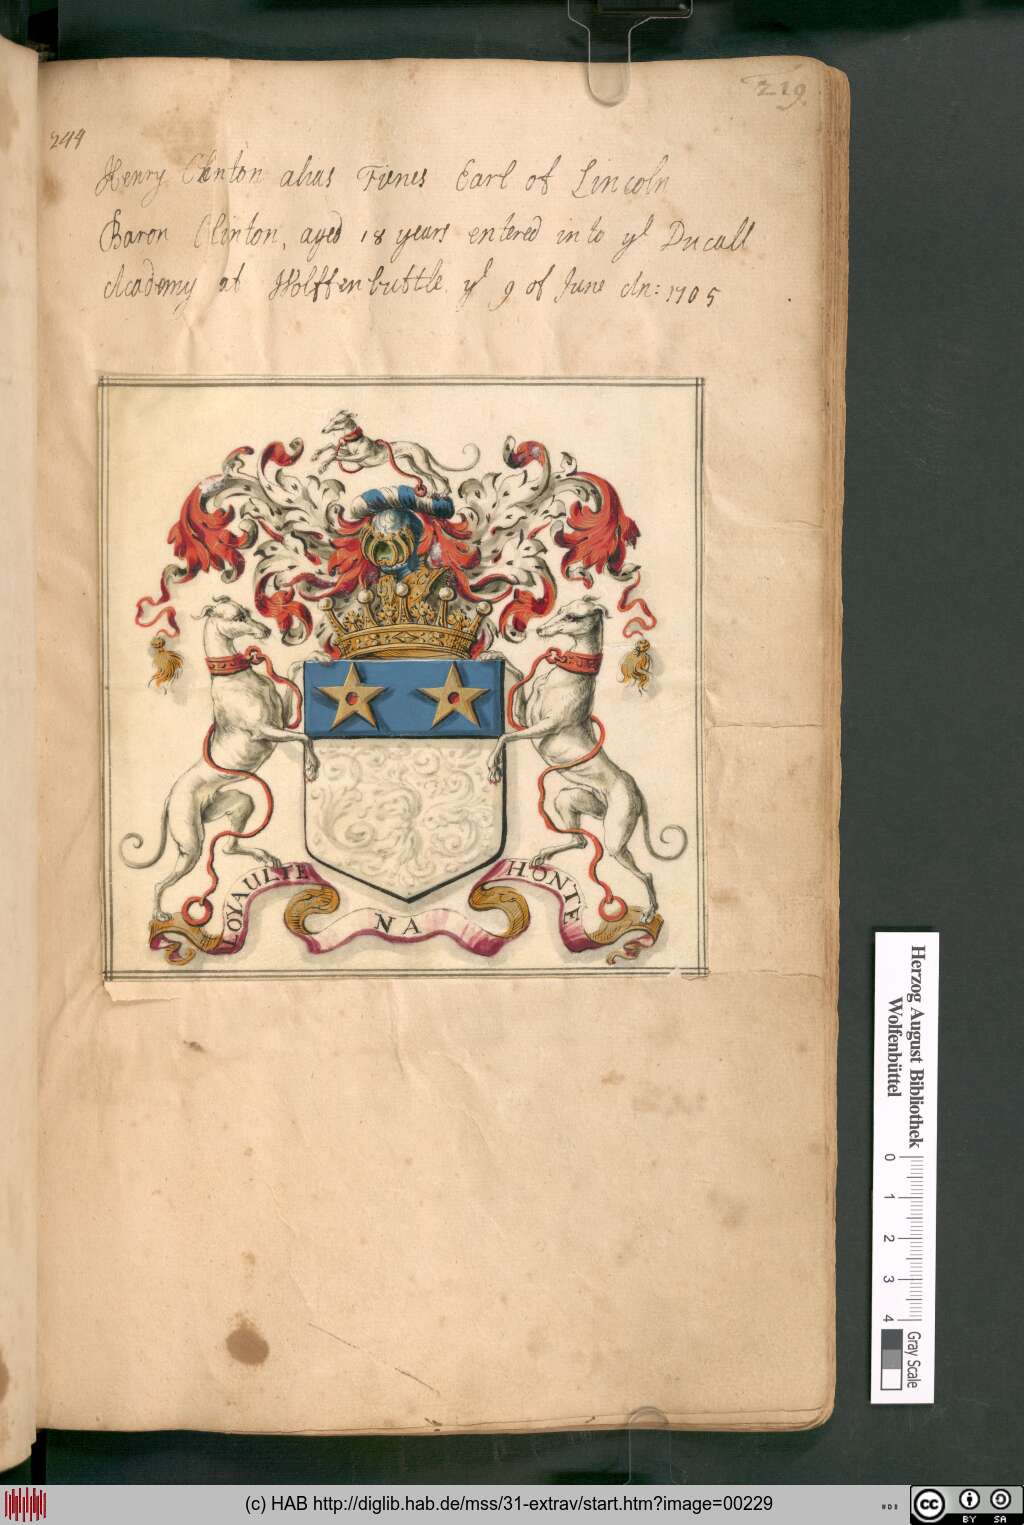 219.
244
Henry Clinton alias Fienes Earl of Lincoln
Baron Clinton, aged 18 years entered into ye Ducall
Academy at Wolffenbuttle ye 9 of June An: 1705
LOYAULTE NA HONTE
Herzog August Bibliothek
Wolfenbüttel
0 1 2 3 4
Gray Scale
(c) HAB http://diglib.hab.de/mss/31-extrav/start.htm?image=00229
cc BY SA